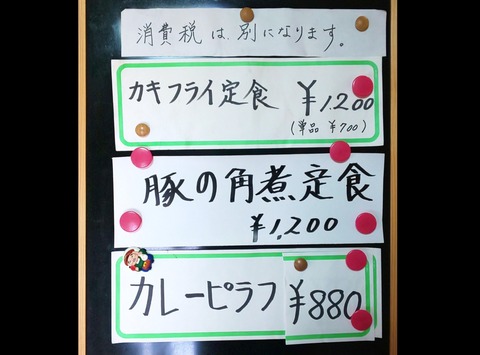 消費税は別になります。
カキフライ定食 ¥1,200
(単品 ¥700)
豚の角煮定食
¥1,200
カレーピラフ ¥880